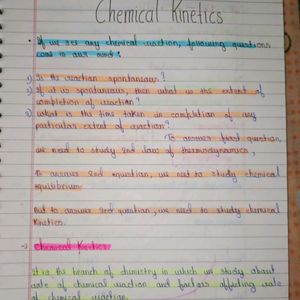 Chemical Kinetics
If we see any chemical reaction, following questions
come in our mind?
1) Is the reaction spontaneous?
2) If it is spontaneous, then what is the extent of
completion of reaction?
3) What is the time taken in completion of any
particular extent of reaction?
To answer first question,
we need to study 2nd law of thermodynamics,
To answer 2nd equation, we need to study chemical
equilibrium.
But to answer 3rd question, we need to study chemical
Kinetics.
Chemical Kinetics.
It is the branch of chemistry in which we study about
rate of chemical reaction and factors affecting rate
of chemical reaction.